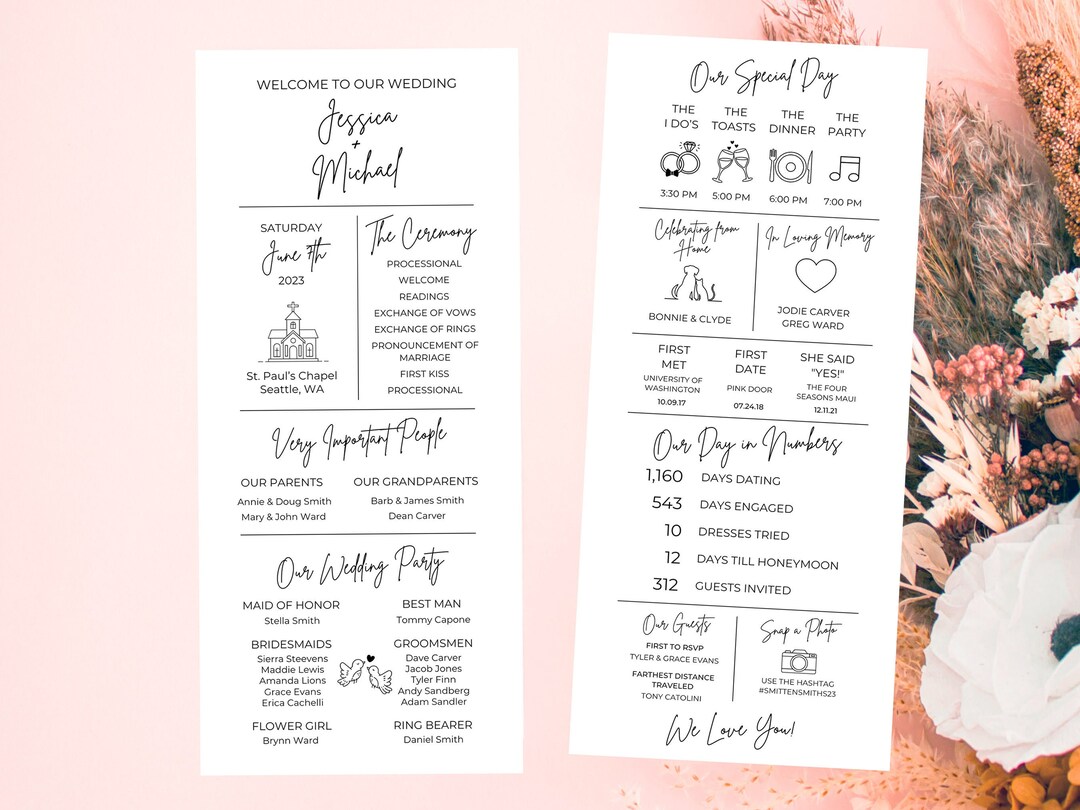 WELCOME TO OUR WEDDING
Jessica
+
Michael
SATURDAY
June 7th
2023
St. Paul's Chapel
Seattle, WA
The Ceremony
PROCESSIONAL
WELCOME
READINGS
EXCHANGE OF VOWS
EXCHANGE OF RINGS
PRONOUNCEMENT OF
MARRIAGE
FIRST KISS
PROCESSIONAL
Very Important People
OUR PARENTS
Annie & Doug Smith
Mary & John Ward
OUR GRANDPARENTS
Barb & James Smith
Dean Carver
Our Wedding Party
MAID OF HONOR
Stella Smith
BEST MAN
Tommy Capone
BRIDESMAIDS
Sierra Steevens
Maddie Lewis
Amanda Lions
Grace Evans
Erica Cachelli
GROOMSMEN
Dave Carver
Jacob Jones
Tyler Finn
Andy Sandberg
Adam Sandler
FLOWER GIRL
Brynn Ward
RING BEARER
Daniel Smith
Our Special Day
THE
I DO'S
3:30 PM
THE
TOASTS
5:00 PM
THE
DINNER
6:00 PM
THE
PARTY
7:00 PM
Celebrating from
Home
BONNIE & CLYDE
In Loving Memory
JODIE CARVER
GREG WARD
FIRST
MET
UNIVERSITY OF
WASHINGTON
10.09.17
FIRST
DATE
PINK DOOR
07.24.18
SHE SAID
"YES!"
THE FOUR
SEASONS MAUI
12.11.21
Our Day in Numbers
1,160 DAYS DATING
543 DAYS ENGAGED
10 DRESSES TRIED
12 DAYS TILL HONEYMOON
312 GUESTS INVITED
Our Guests
FIRST TO RSVP
TYLER & GRACE EVANS
FARTHEST DISTANCE
TRAVELED
TONY CATOLINI
Snap a Photo
USE THE HASHTAG
#SMITTENSMITHS23
We Love You!